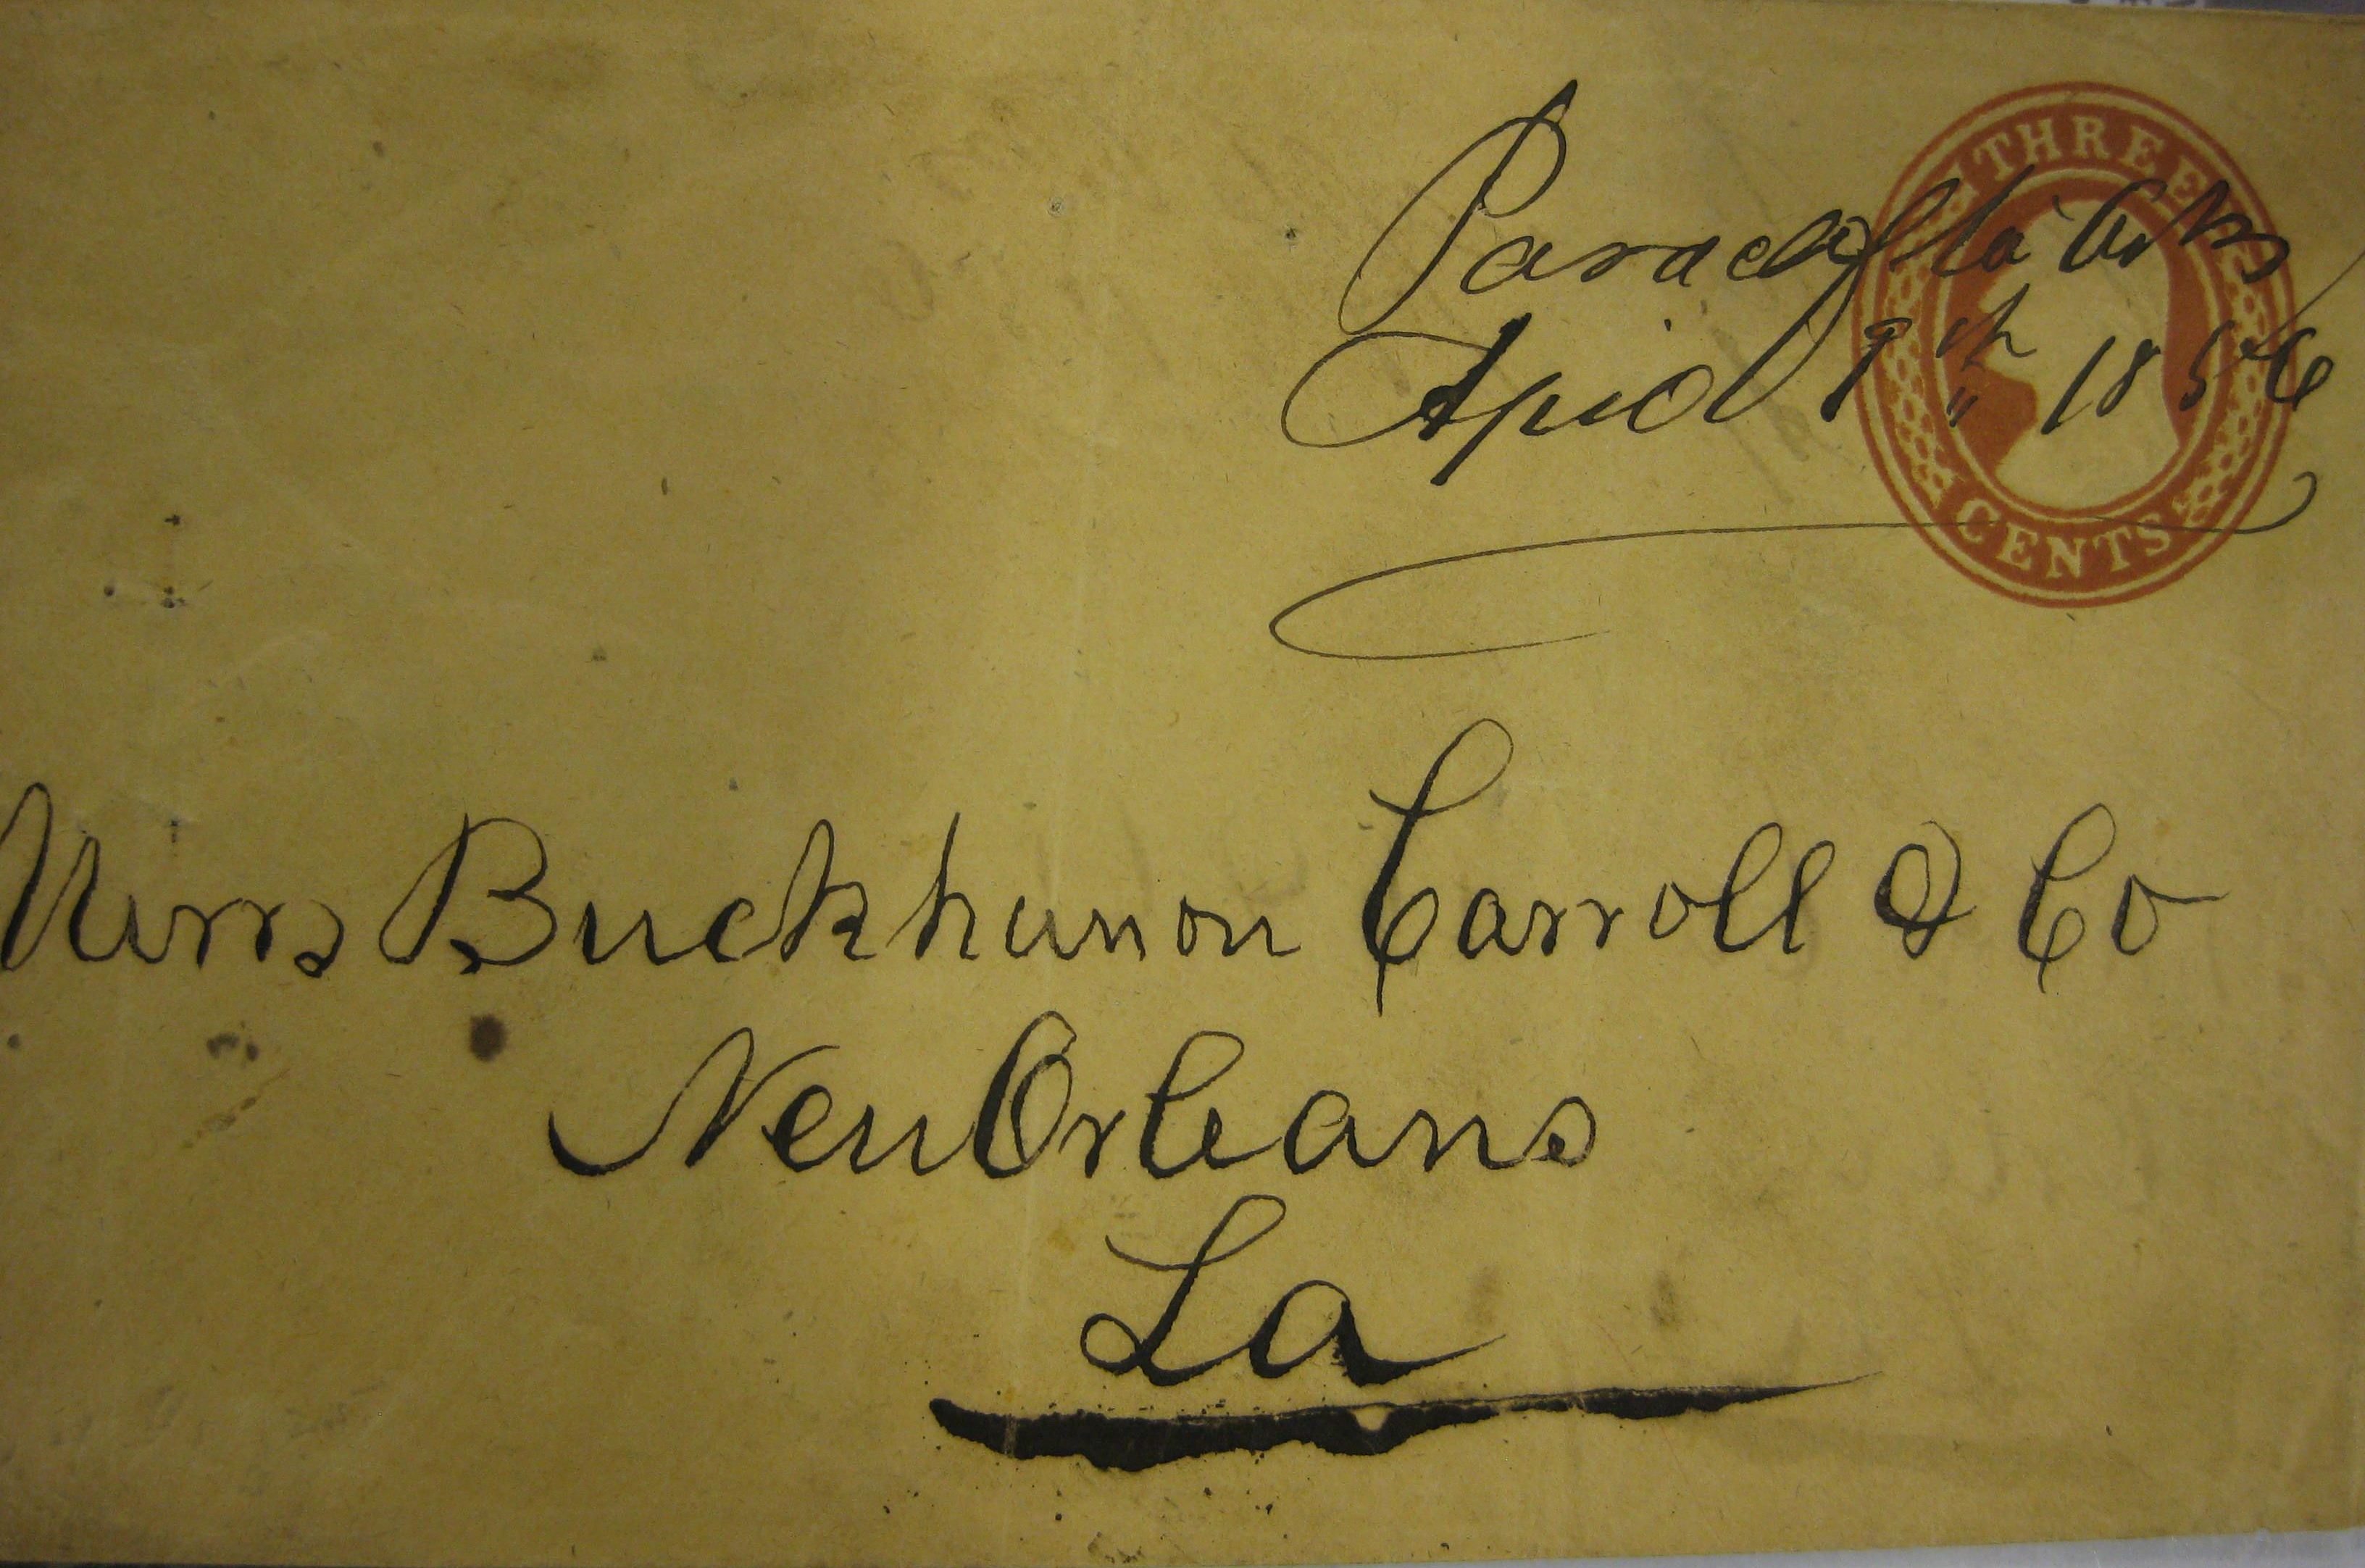 Paraclifta
April 9th 1856
THREE
CENTS
Messrs Buckhannon Carroll & Co
New Orleans
La